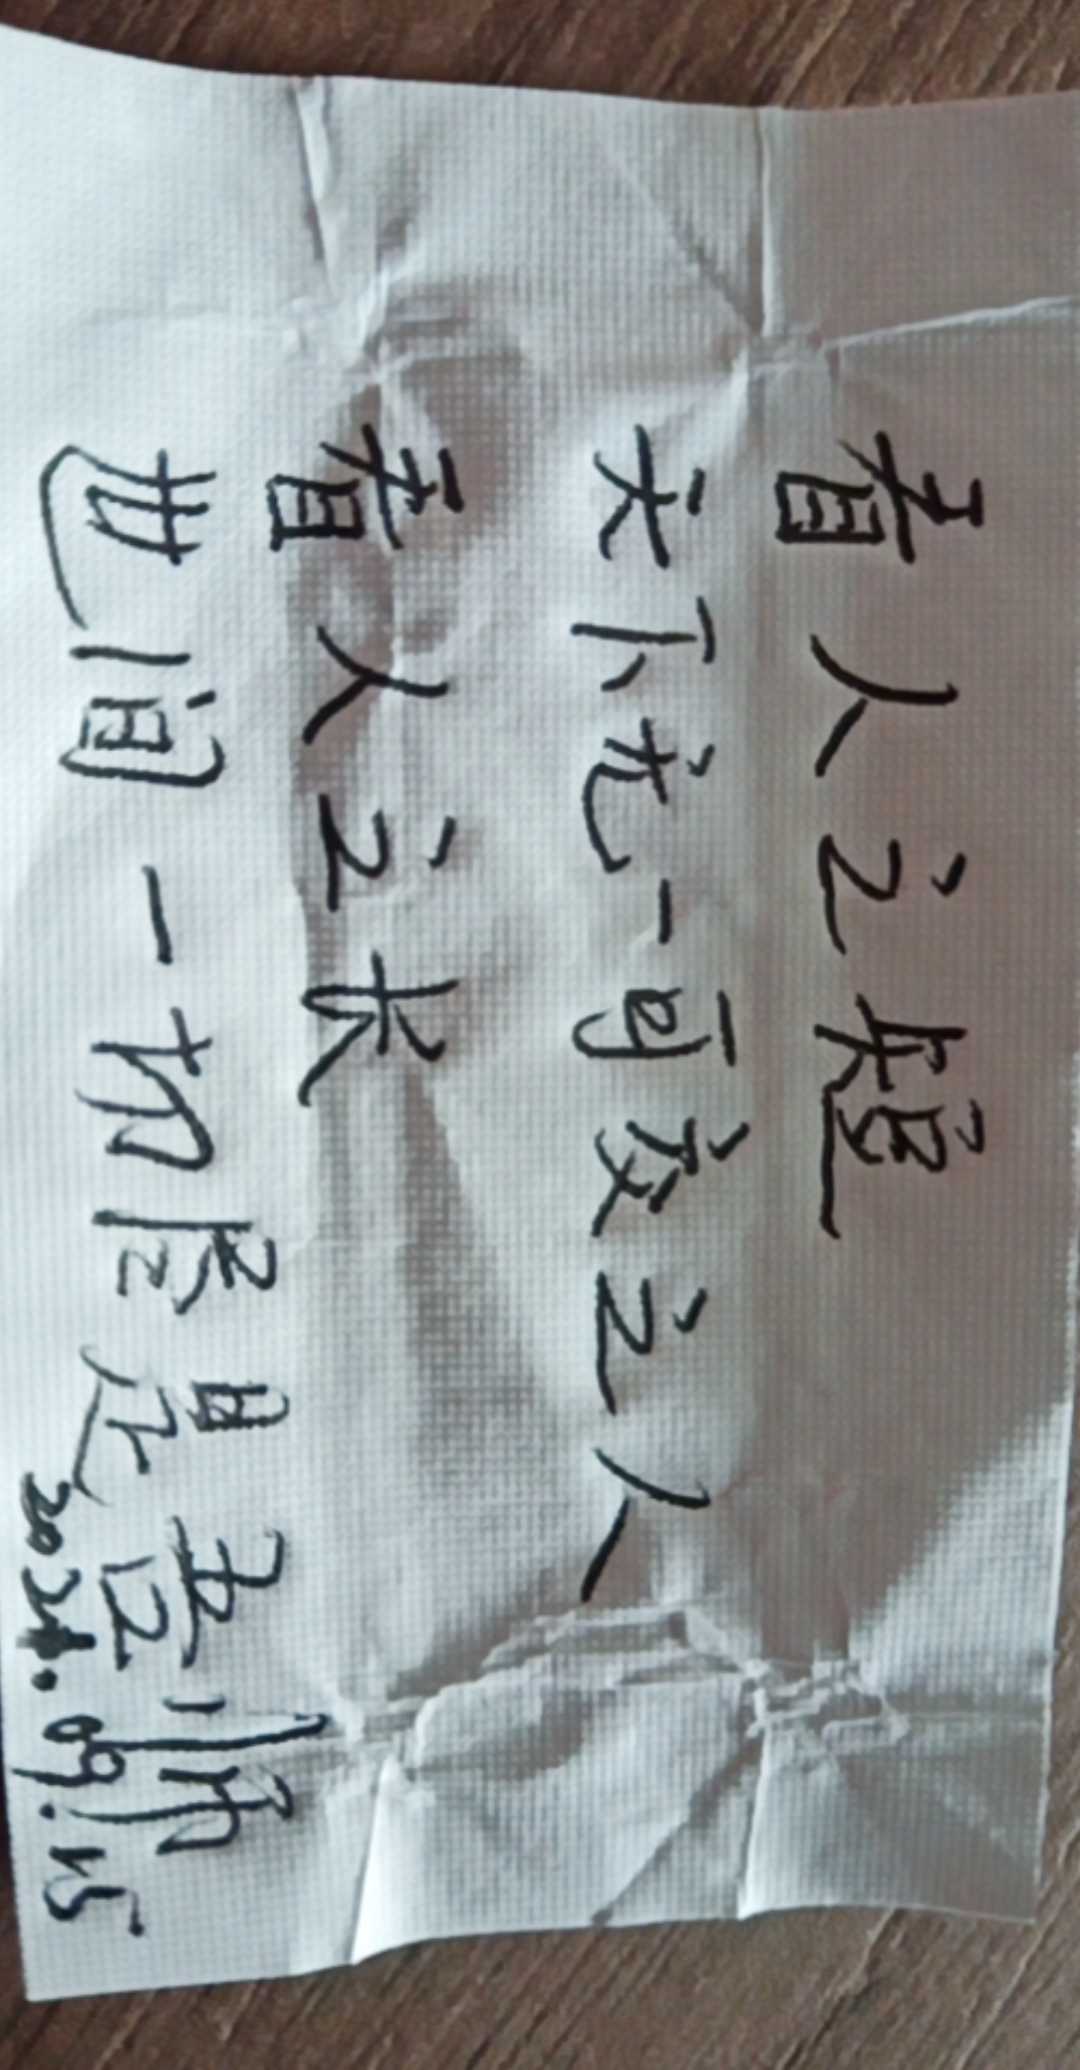 看人之短
天下无一可交之人
看人之长
世间一切尽是吾师
2024.09.15